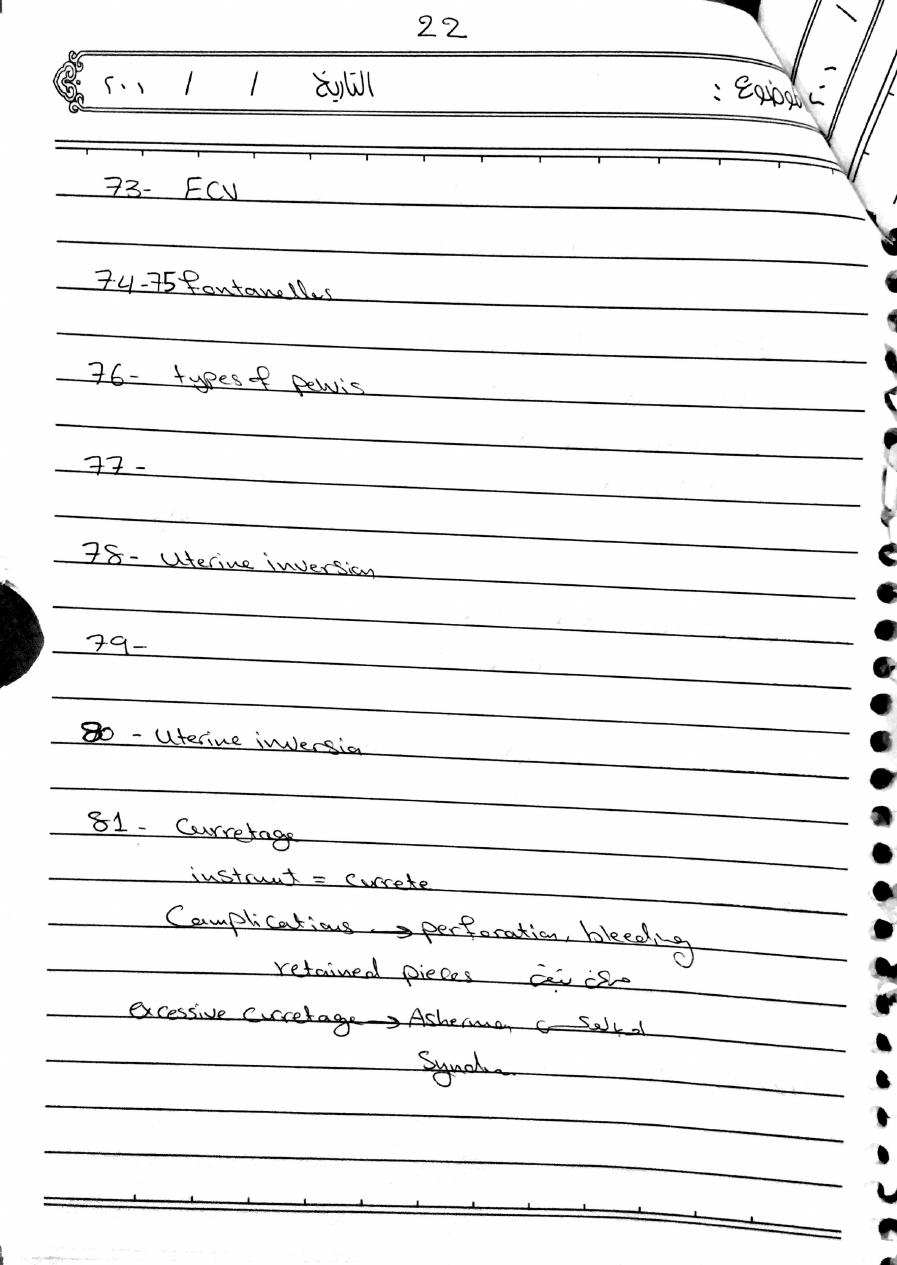 22
الموضوع : التاريخ / / ٢٠٠١
73- ECV
74-75 fontanelles
76- types of pelvis
77-
78- Uterine inversion
79-
80 - Uterine inversio
81- Curretage
instrumt = currete
Complications → perforation, bleeding
retained pieces ممكن تبقى
excessive curretage → Asherman
Syndr